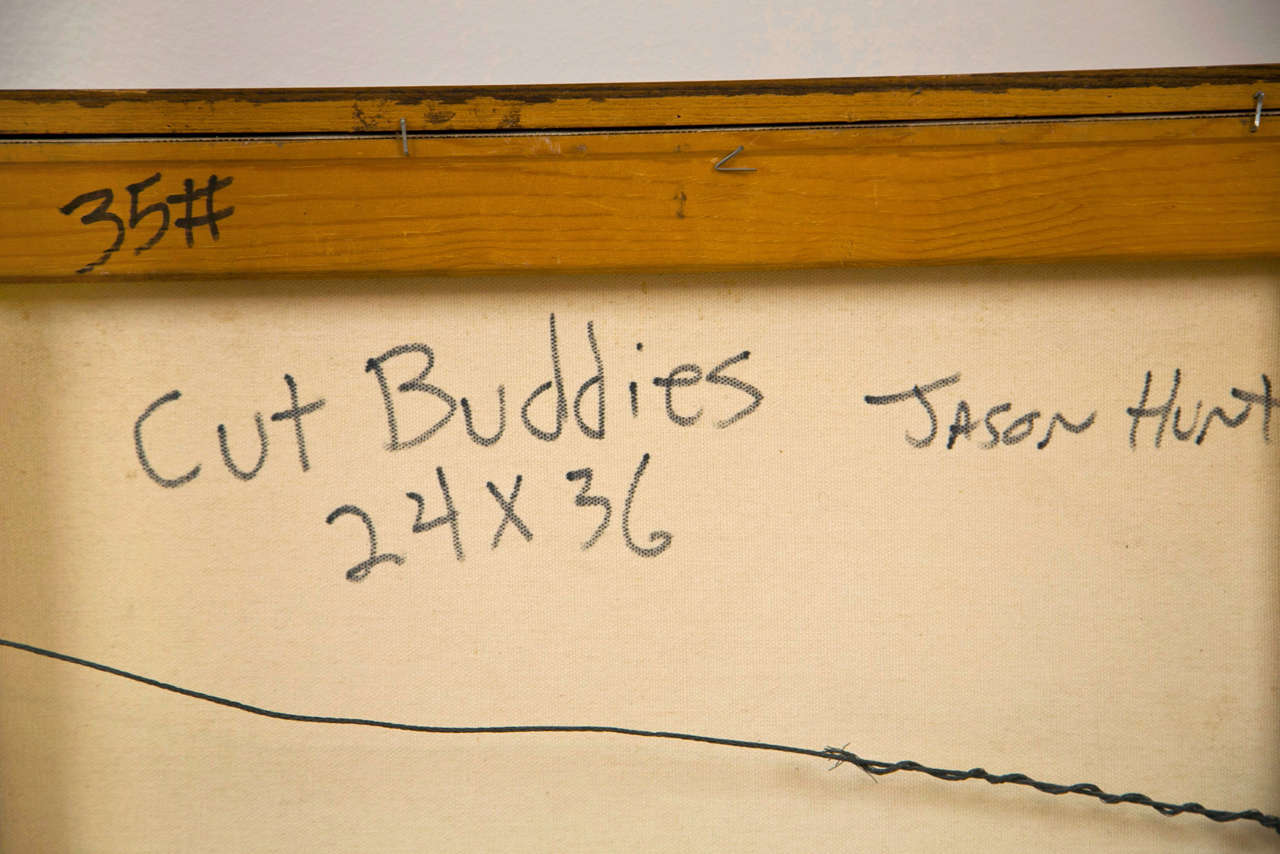 35#
Cut Buddies JASON HUNT
24 X 36